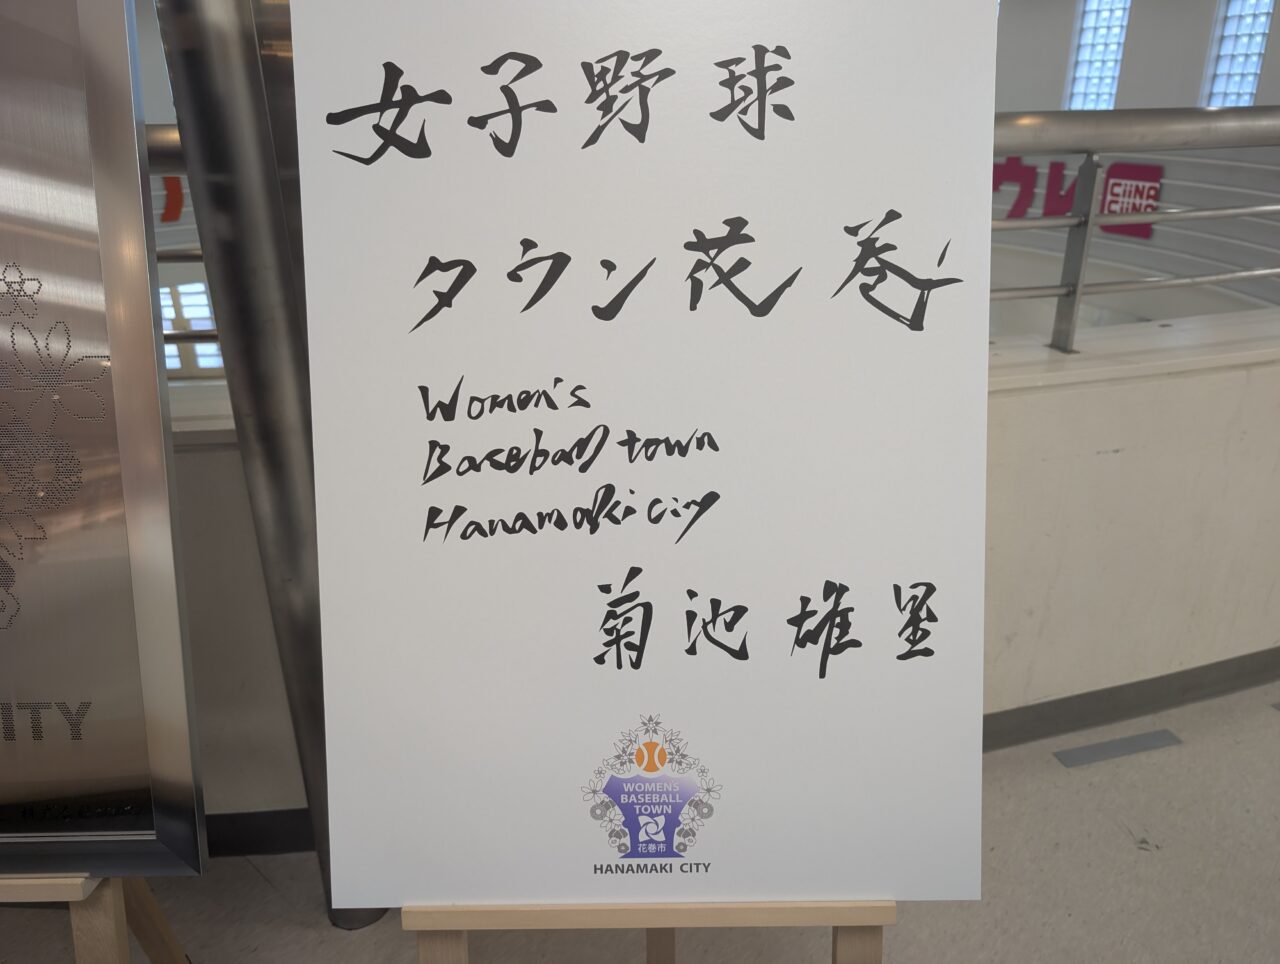 女子野球
タウン花巻
Women's
Baseball town
Hanamaki city
菊池雄星
WOMENS
BASEBALL
TOWN
花巻市
HANAMAKI CITY
ITY
ウレ
CiiNA
CiiNA